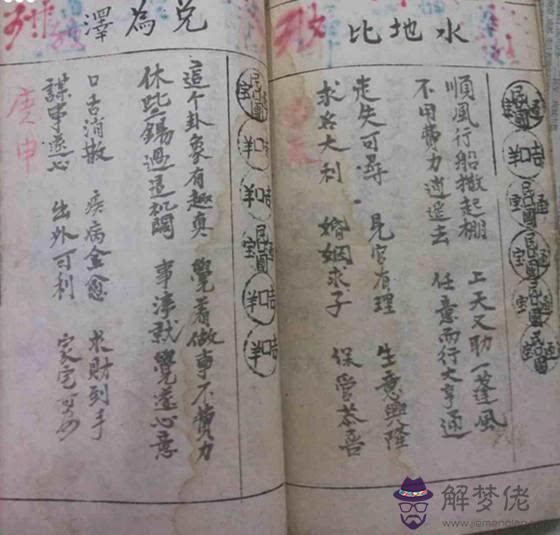 水地比
順風行船撒起棚 上天又助一蓬風
不用費力逍遥去 任意而行大亨通
走失可尋 見官有理 生意興隆
求名大利 婚姻求子 保管恭喜
兌為澤
這个卦象有趣真 覺着做事不費力
休 錯過這机関 事 就覺遂心意
口舌消散 疾病全愈 求財到手
謀事遂心 出外可利 家宅
庚申
解梦佬